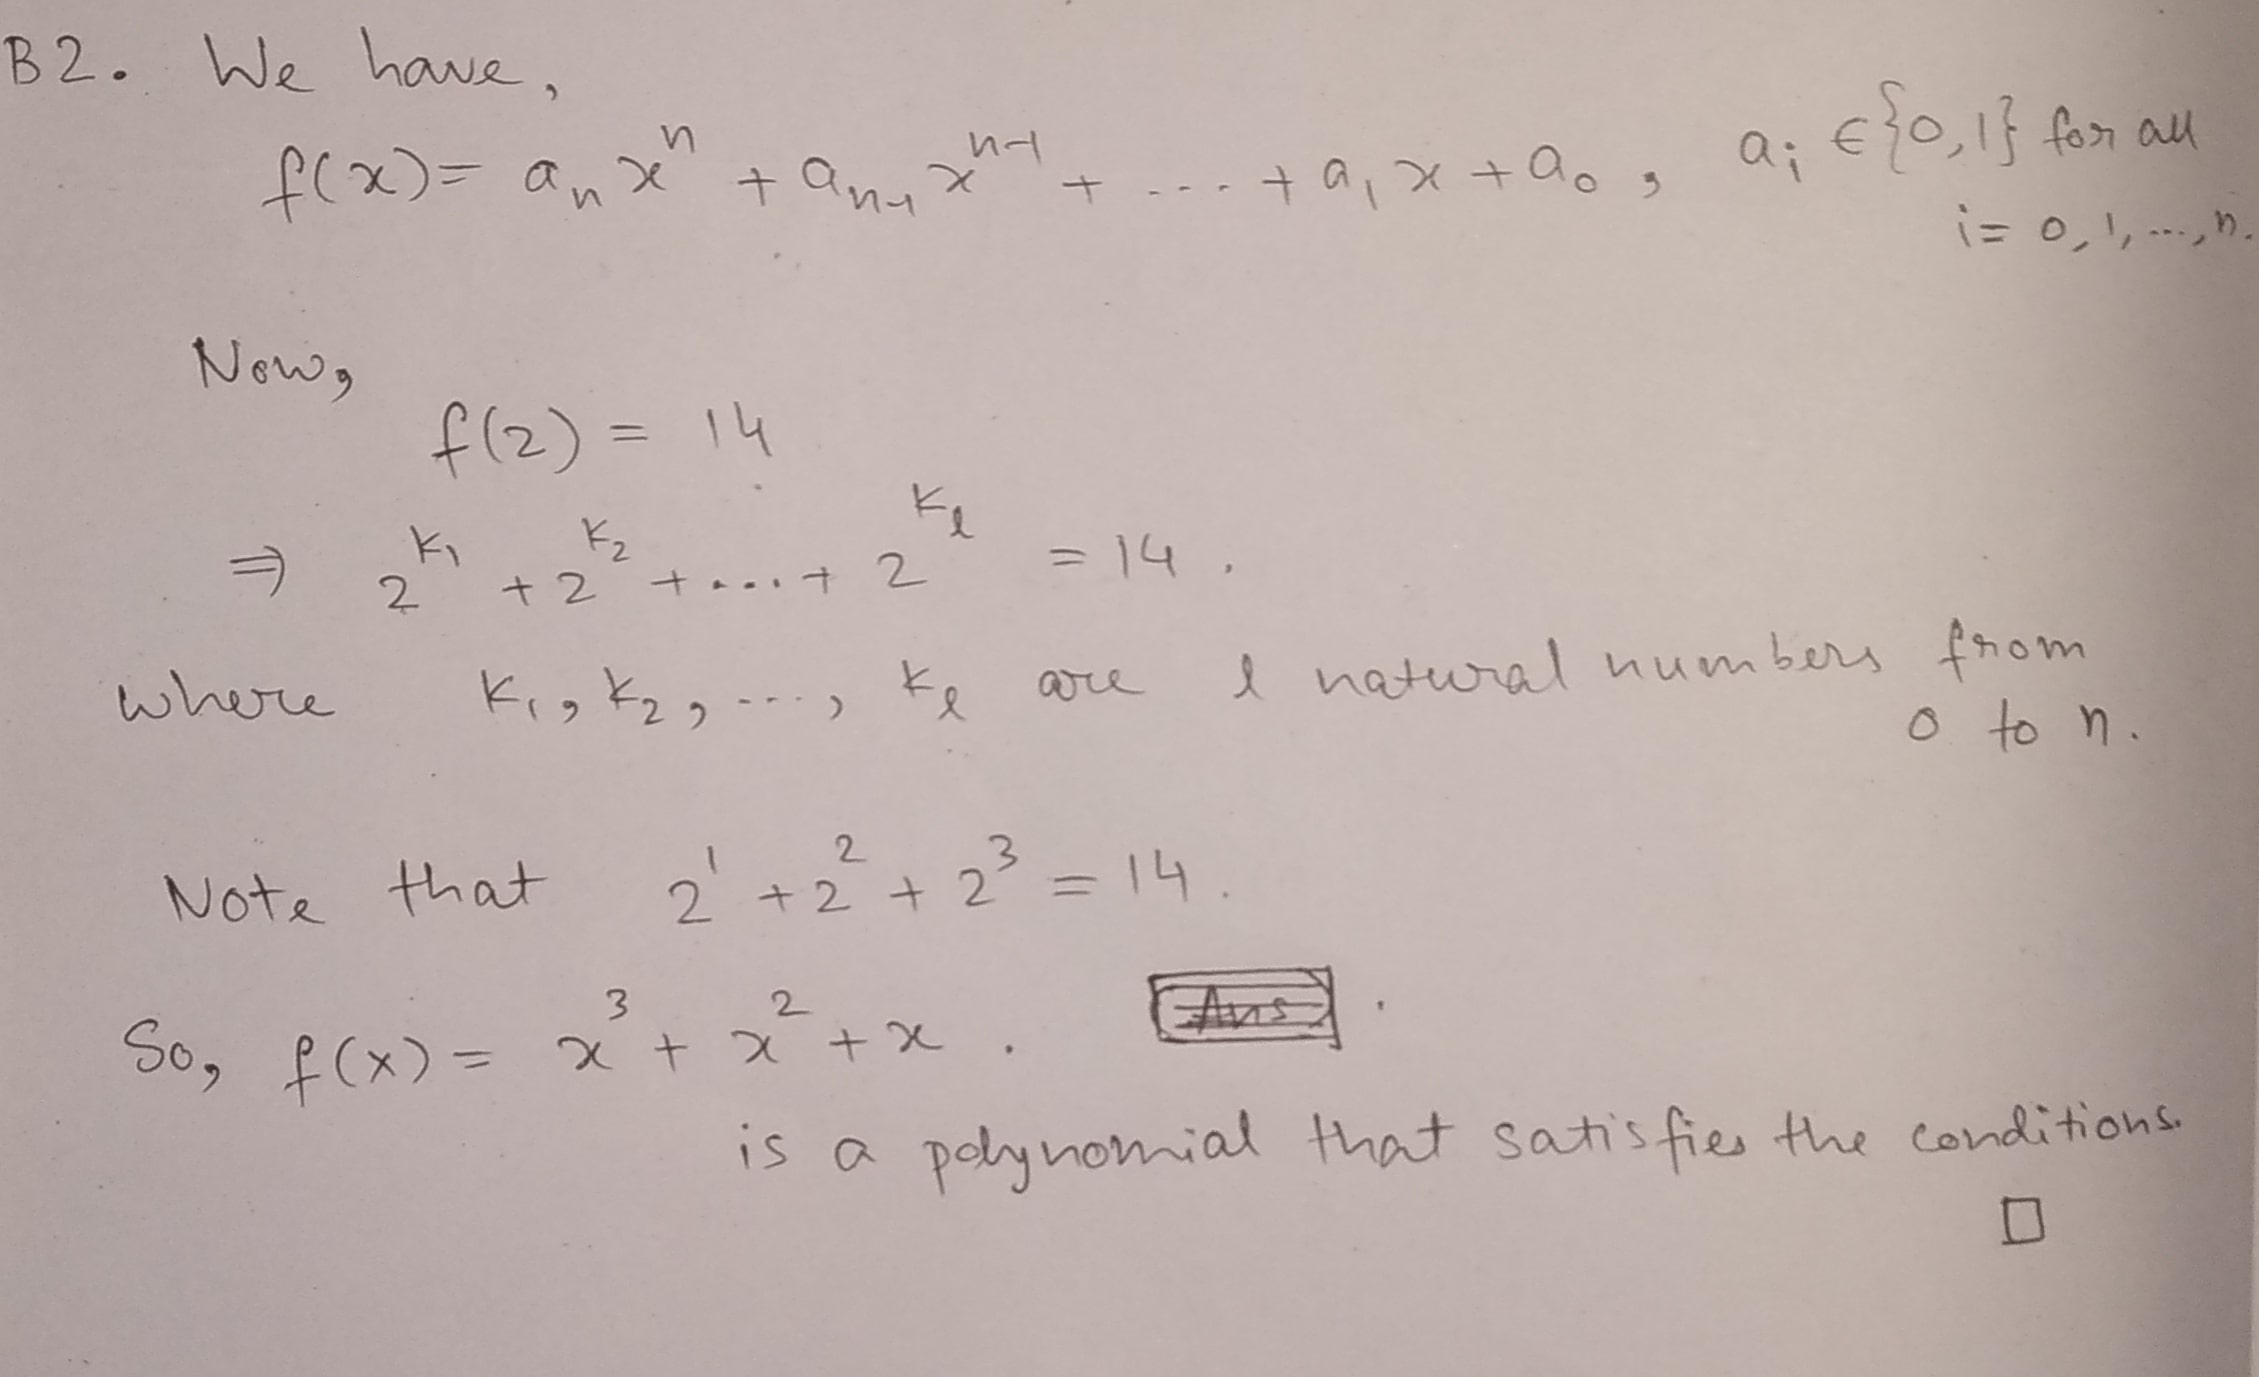 B2. We have,
f(x) = aₙxⁿ + aₙ₋₁xⁿ⁻¹ + .... + a₁x + a₀, aᵢ ∈ {0,1} for all
i = 0, 1, ..., n.
Now,
f(2) = 14
⇒ 2^{k₁} + 2^{k₂} + .... + 2^{k_ℓ} = 14.
where k₁, k₂, ..., k_ℓ are ℓ natural numbers from
0 to n.
Note that 2¹ + 2² + 2³ = 14.
So, f(x) = x³ + x² + x. Ans.
is a polynomial that satisfies the conditions.
□